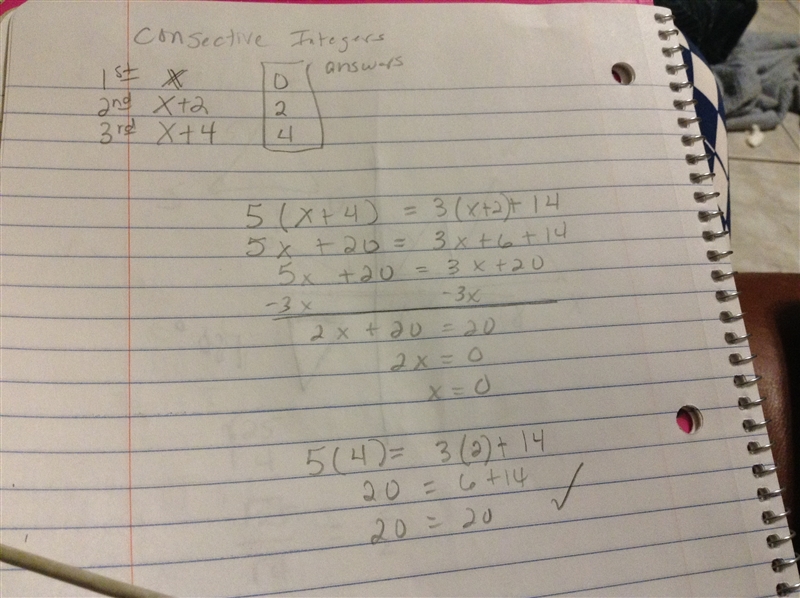 Consective Integers
1st x 0 answers
2nd x+2 2
3rd x+4 4
5(x+4) = 3(x+2)+14
5x +20 = 3x+6+14
5x +20 = 3x+20
-3x -3x
2x+20 = 20
2x = 0
x = 0
5(4) = 3(2)+14
20 = 6+14
20 = 20 ✓